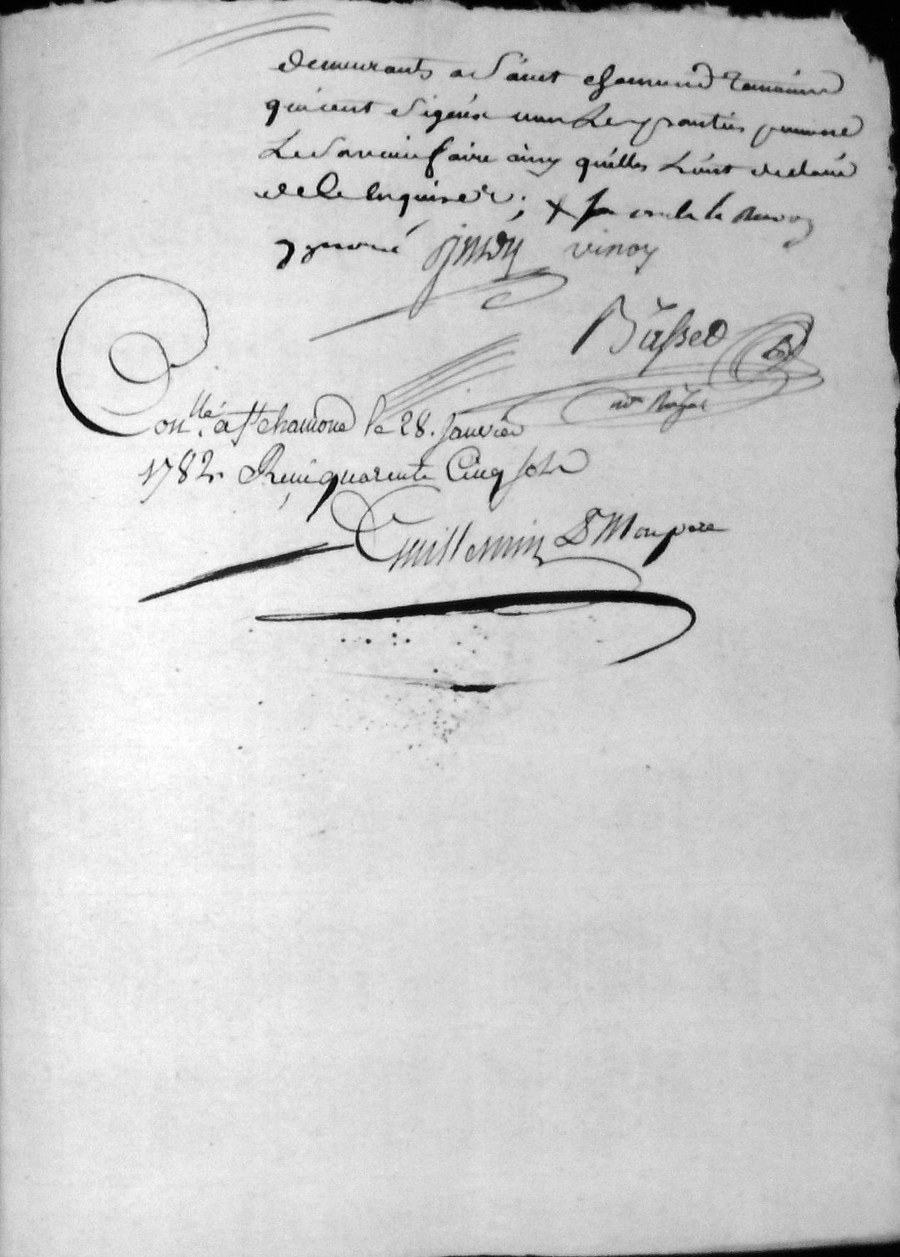 demeurants a Saint chamond temoins
qui ont signés non Les parties pour ne
Le Savoir faire ainsy quelles L'ont declaré
de ce enquises;
approuvé vinoy
Basset
nre Royal
Conllé. a St chamond le 28. janvier
1782. Reçu quarente Cinq sols
Guillemin Dt Monpere